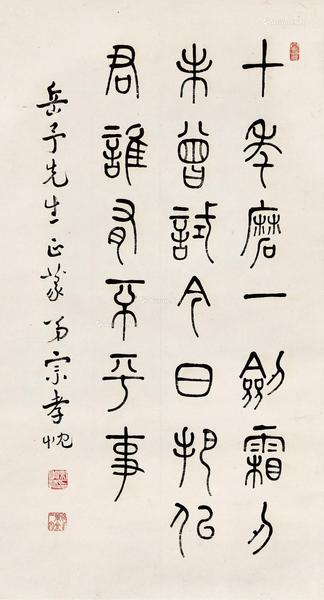 十年磨一劍霜刃
未曾試今日把似
君誰有不平事
岳予先生正篆弟宗孝忱